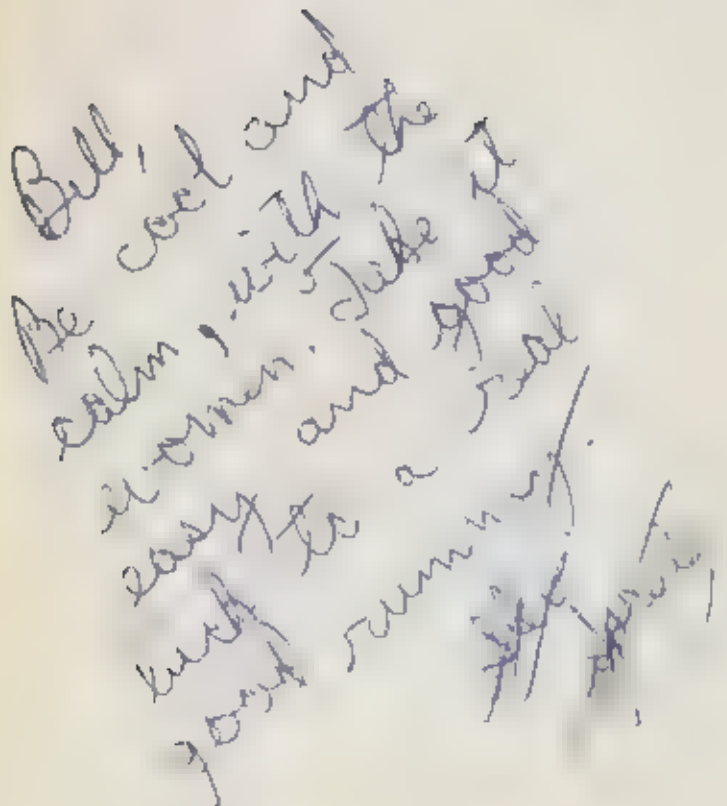 Bill,
Be cool and
calm, with the
women. Take it
easy and good
luck to a real
good runn